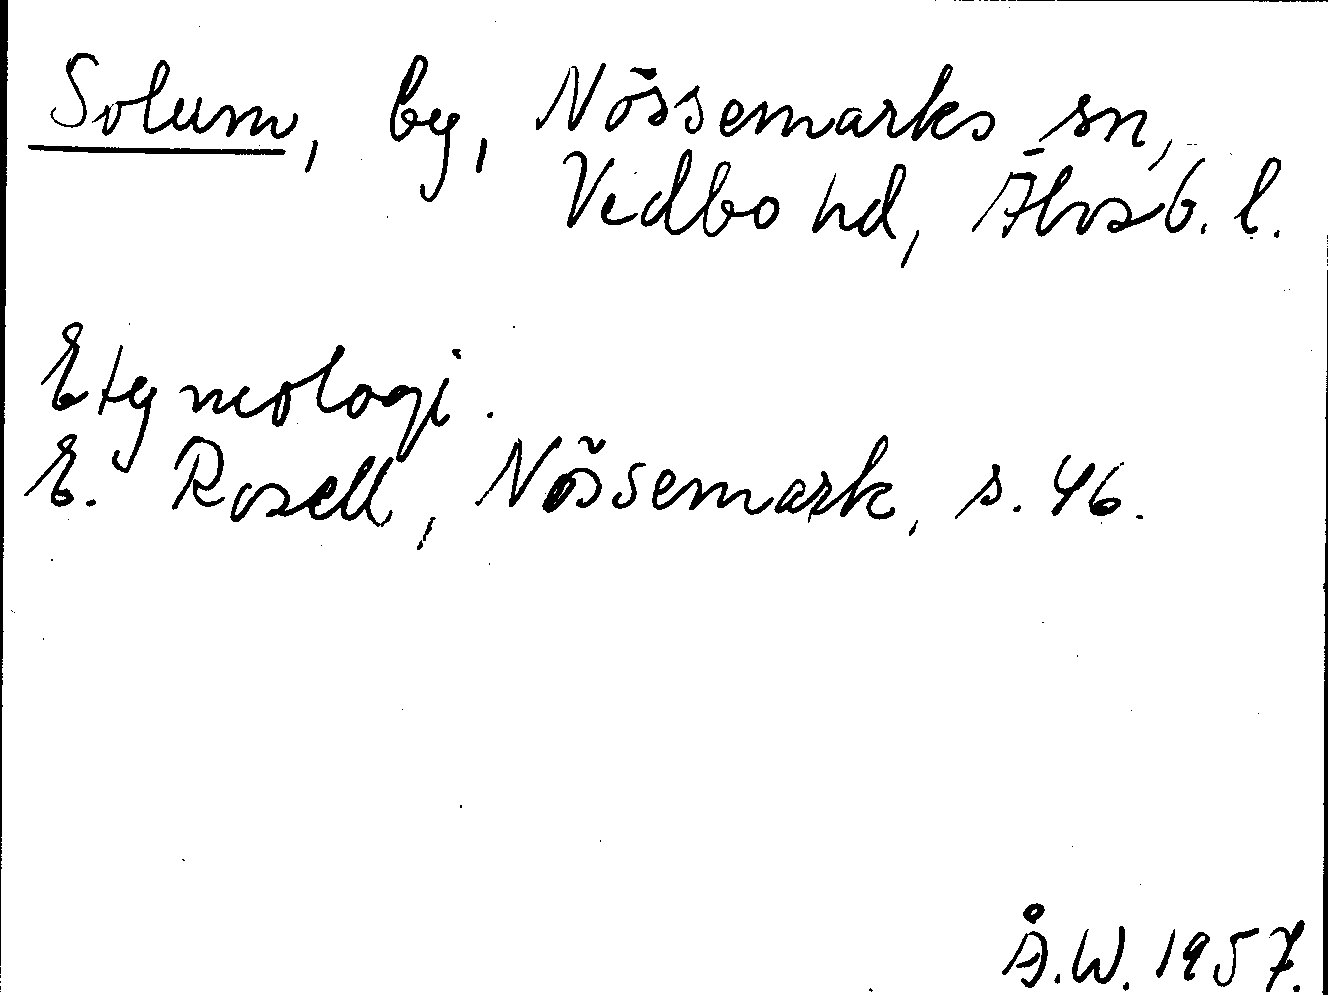 Solum, by, Nössemarks sn,
Vedbo hd, Älvsb. l.
Etymologi.
E. Rosell, Nössemark, s. 46.
Å.W. 1957.